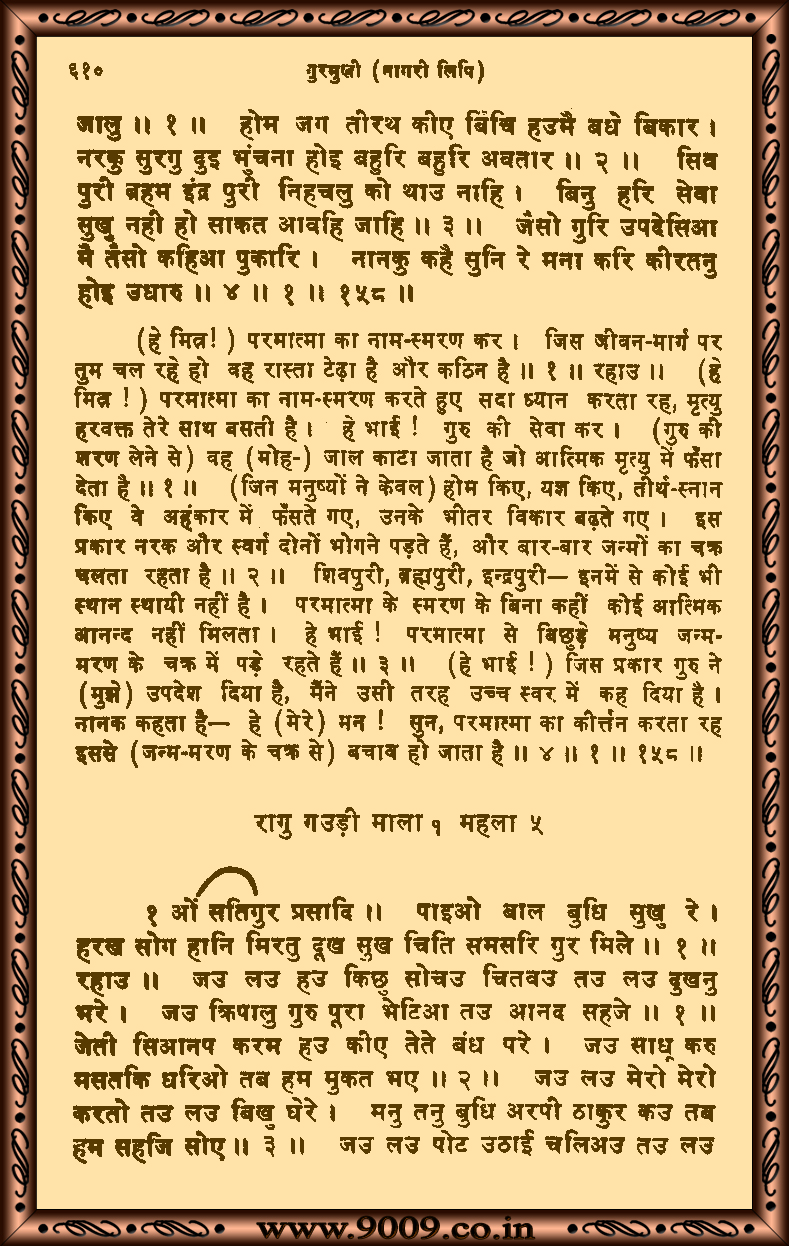 ६१० गुरमुखी (नागरी लिपि)
जालु ॥ १ ॥ होम जग तीरथ कीए बिचि हउमै बधे बिकार ।
नरकु सुरगु दुइ भुंचना होइ बहुरि बहुरि अवतार ॥ २ ॥ सिव
पुरी ब्रहम इंद्र पुरी निहचलु को थाउ नाहि । बिनु हरि सेवा
सुखु नही हो साकत आवहि जाहि ॥ ३ ॥ जैसो गुरि उपदेसिआ
मै तैसो कहिआ पुकारि । नानकु कहै सुनि रे मना करि कीरतनु
होइ उधारु ॥ ४ ॥ १ ॥ १५८ ॥
(हे मित्र! ) परमात्मा का नाम-स्मरण कर । जिस जीवन-मार्ग पर
तुम चल रहे हो वह रास्ता टेढ़ा है और कठिन है ॥ १ ॥ रहाउ ॥ (हे
मित्र ! ) परमात्मा का नाम-स्मरण करते हुए सदा ध्यान करता रह, मृत्यु
हरवक्त तेरे साथ बसती है । हे भाई ! गुरु की सेवा कर । (गुरु की
शरण लेने से) वह (मोह-) जाल काटा जाता है जो आत्मिक मृत्यु में फँसा
देता है ॥ १ ॥ (जिन मनुष्यों ने केवल) होम किए, यज्ञ किए, तीर्थ-स्नान
किए वे अहंकार में फँसते गए, उनके भीतर विकार बढ़ते गए । इस
प्रकार नरक और स्वर्ग दोनों भोगने पड़ते हैं, और बार-बार जन्मों का चक्र
चलता रहता है ॥ २ ॥ शिवपुरी, ब्रह्मपुरी, इन्द्रपुरी— इनमें से कोई भी
स्थान स्थायी नहीं है । परमात्मा के स्मरण के बिना कहीं कोई आत्मिक
आनन्द नहीं मिलता । हे भाई ! परमात्मा से बिछुड़े मनुष्य जन्म-
मरण के चक्र में पड़े रहते हैं ॥ ३ ॥ (हे भाई ! ) जिस प्रकार गुरु ने
(मुझे) उपदेश दिया है, मैंने उसी तरह उच्च स्वर में कह दिया है ।
नानक कहता है— हे (मेरे) मन ! सुन, परमात्मा का कीर्त्तन करता रह
इससे (जन्म-मरण के चक्र से) बचाव हो जाता है ॥ ४ ॥ १ ॥ १५८ ॥
रागु गउड़ी माला १ महला ५
१ ओं सतिगुर प्रसादि ॥ पाइओ बाल बुधि सुखु रे ।
हरख सोग हानि मिरतु दूख सुख चिति समसरि गुर मिले ॥ १ ॥
रहाउ ॥ जउ लउ हउ किछु सोचउ चितवउ तउ लउ दुखनु
भरे । जउ क्रिपालु गुरु पूरा भेटिआ तउ आनद सहजे ॥ १ ॥
जेती सिआनप करम हउ कीए तेते बंध परे । जउ साधू करु
मसतकि धरिओ तब हम मुकत भए ॥ २ ॥ जउ लउ मेरो मेरो
करतो तउ लउ बिखु घेरे । मनु तनु बुधि अरपी ठाकुर कउ तब
हम सहजि सोए ॥ ३ ॥ जउ लउ पोट उठाई चलिअउ तउ लउ
www.9009.co.in